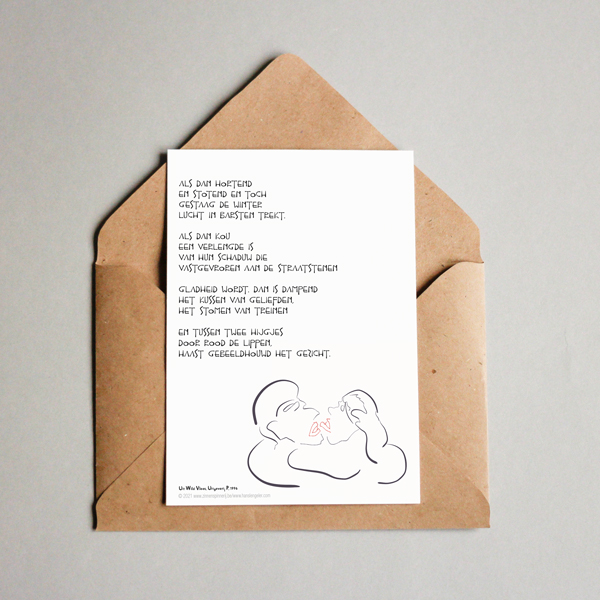 ALS DAN HORTEND
EN STOTEND EN TOCH
GESTAAG DE WINTER
LUCHT IN BARSTEN TREKT.
ALS DAN KOU
EEN VERLENGDE IS
VAN HUN SCHADUW DIE
VASTGEVROREN AAN DE STRAATSTENEN
GLADHEID WORDT. DAN IS DAMPEND
HET KUSSEN VAN GELIEFDEN,
HET STOMEN VAN TREINEN
EN TUSSEN TWEE HIJGJES
DOOR ROOD DE LIPPEN,
HAAST GEBEELDHOUWD HET GEZICHT.
Uit Wild Vlees, Uitgeverij P, 1996
© 2021